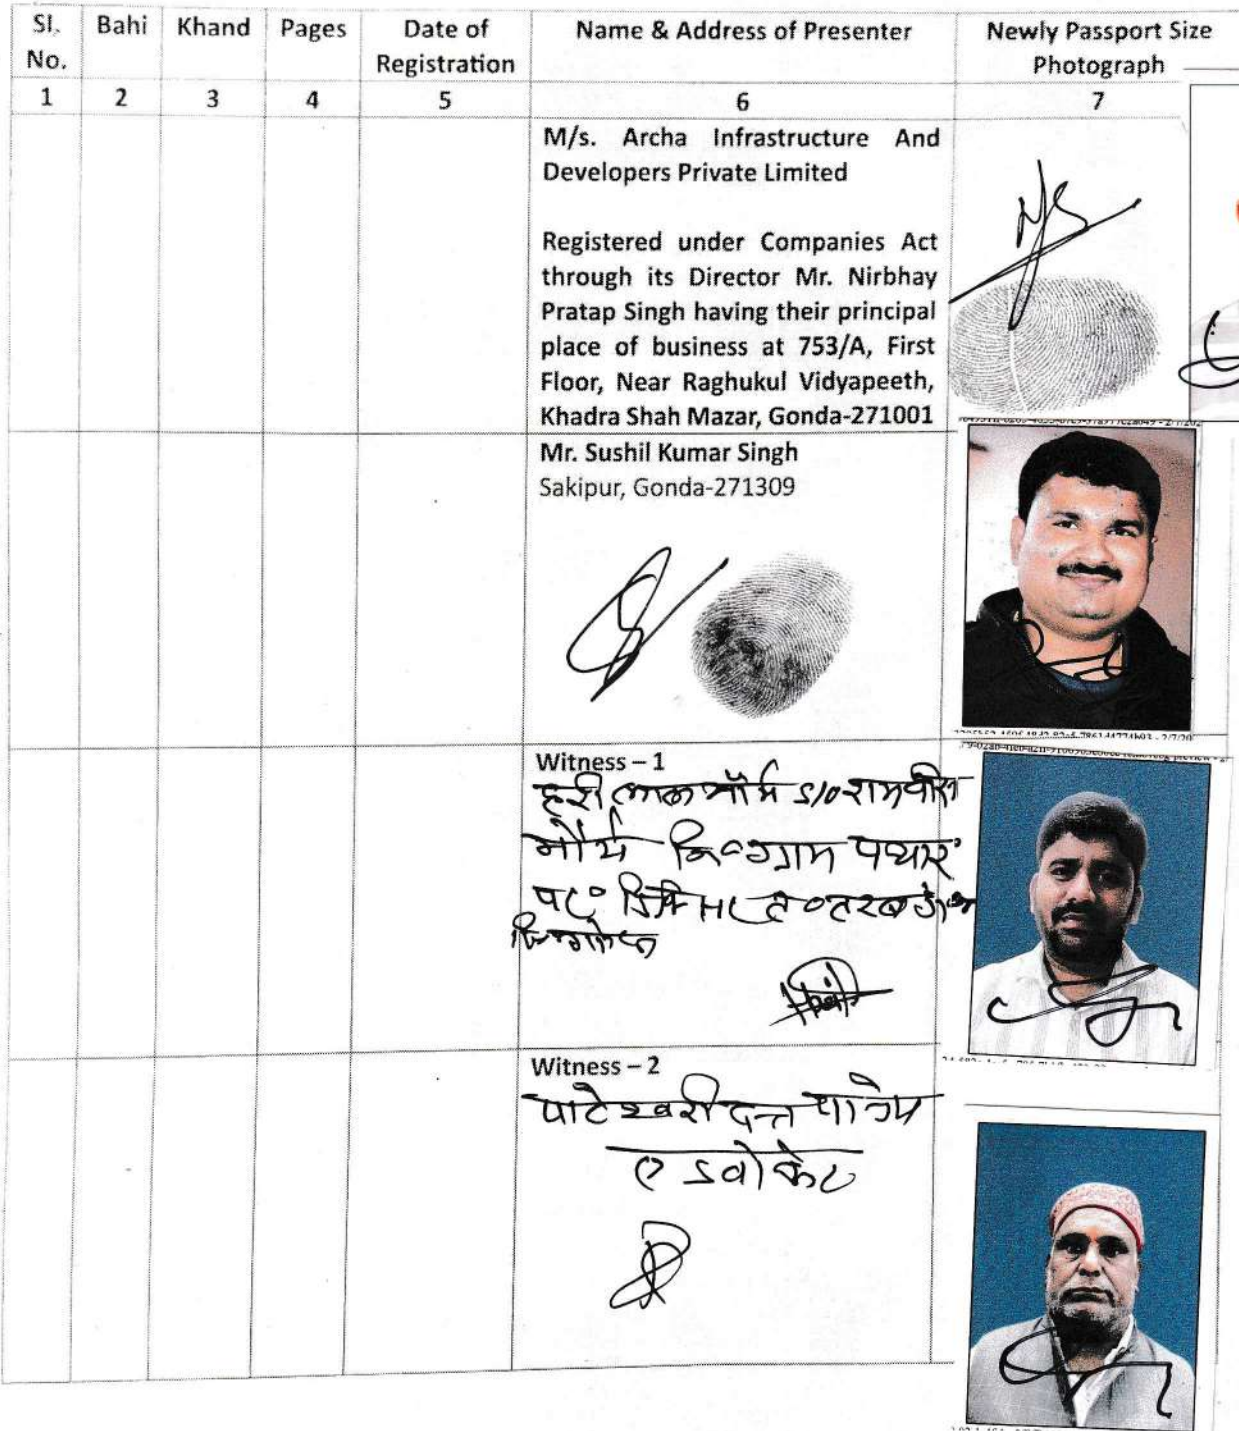 Sl. No. Bahi Khand Pages Date of Registration Name & Address of Presenter Newly Passport Size Photograph
1 2 3 4 5 6 7
M/s. Archa Infrastructure And
Developers Private Limited
Registered under Companies Act
through its Director Mr. Nirbhay
Pratap Singh having their principal
place of business at 753/A, First
Floor, Near Raghukul Vidyapeeth,
Khadra Shah Mazar, Gonda-271001
Mr. Sushil Kumar Singh
Sakipur, Gonda-271309
Witness – 1
हरी लाल मौर्य S/o राम
मौर्य नि० ग्राम
Witness – 2
पाटेश्वरी दत्त पाण्डेय
एडवोकेट